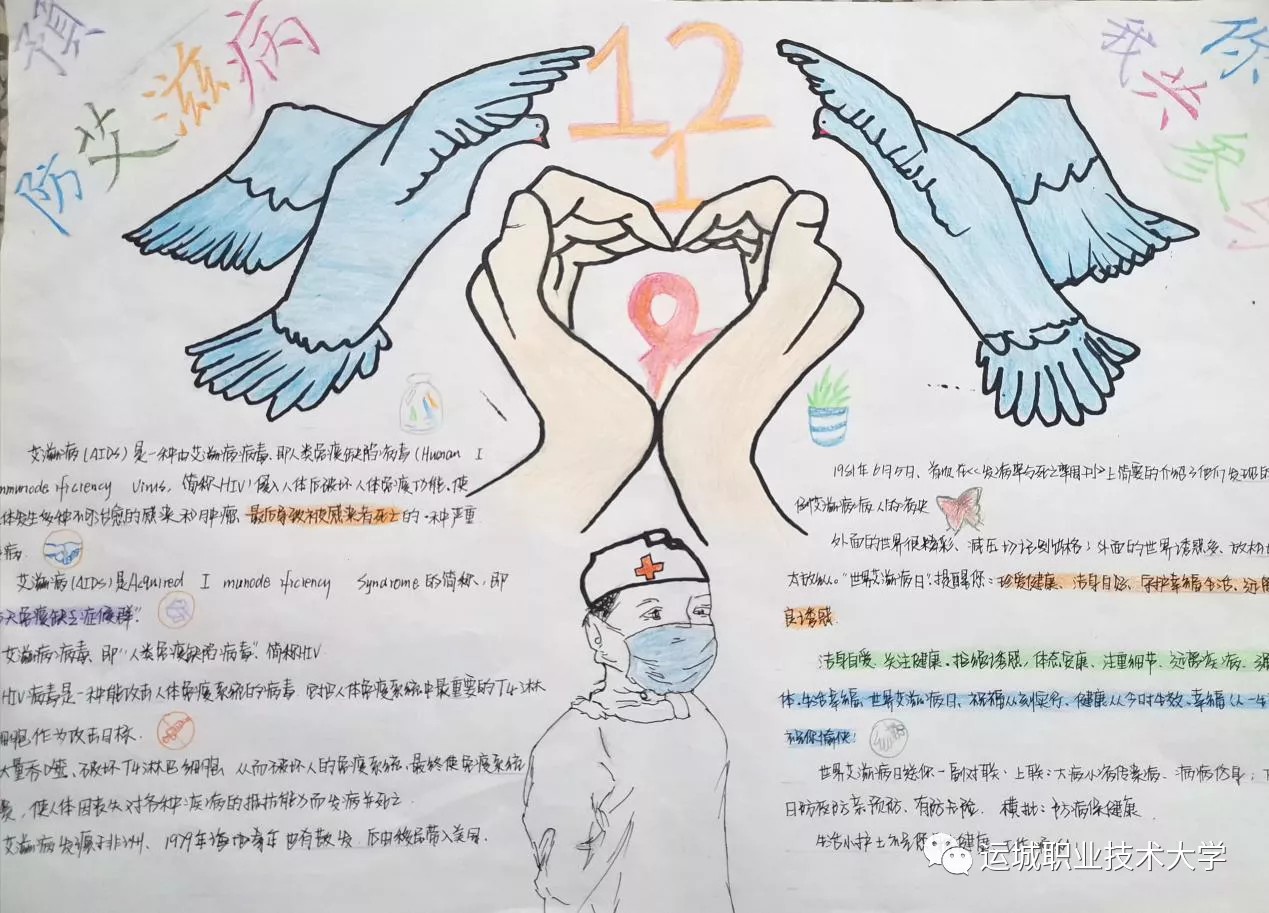 预
防
艾
滋
病
12
1
你
我
共
参
与
艾滋病(AIDS)是一种由艾滋病病毒、即人类免疫缺陷病毒(Human I
mmunode ficiency virus, 简称HIV)侵入人体后破坏人体免疫功能,使
体发生多种不可治愈的感染和肿瘤,最后导致被感染者死亡的一种严重
病.
艾滋病(AIDS)是Acquired I munode ficiency Syndrome的简称,即
天免疫缺乏症候群"
艾滋病病毒、即"人类免疫缺陷病毒"、简称HIV
HIV病毒是一种能攻击人体免疫系统的病毒.它把人体免疫系统中最重要的T4淋
细胞作为攻击目标.
大量吞噬、破坏T4淋巴细胞,从而破坏人的免疫系统,最终使免疫系统
溃,使人体因丧失对各种疾病的抵抗能力而发病并死亡.
艾滋病发源于非洲、1979年海地青年也有散发,后由移民带入美国.
1981年6月5日、首次在《发病率与死亡率周刊》上简要的介绍了他们发现的
例艾滋病病人的病史
外面的世界很精彩、减压切记别出格;外面的世界诱惑多、放松
太放纵."世界艾滋病日",提醒你:珍爱健康、洁身自好、守护幸福生活、远
良诱惑.
洁身自爱、关注健康.拒绝诱惑,体态安康、注重细节、远离疾病、强
体.生活幸福.世界艾滋病日、祝福从刻实行、健康从今时生效、幸福从一生
祝你愉快!
世界艾滋病日送你一副对联:上联:大病小病传染病、病病伤身;下
日防夜防亲预防、有防无险. 横批:防病保健康
生活小护士 健康
运城职业技术大学